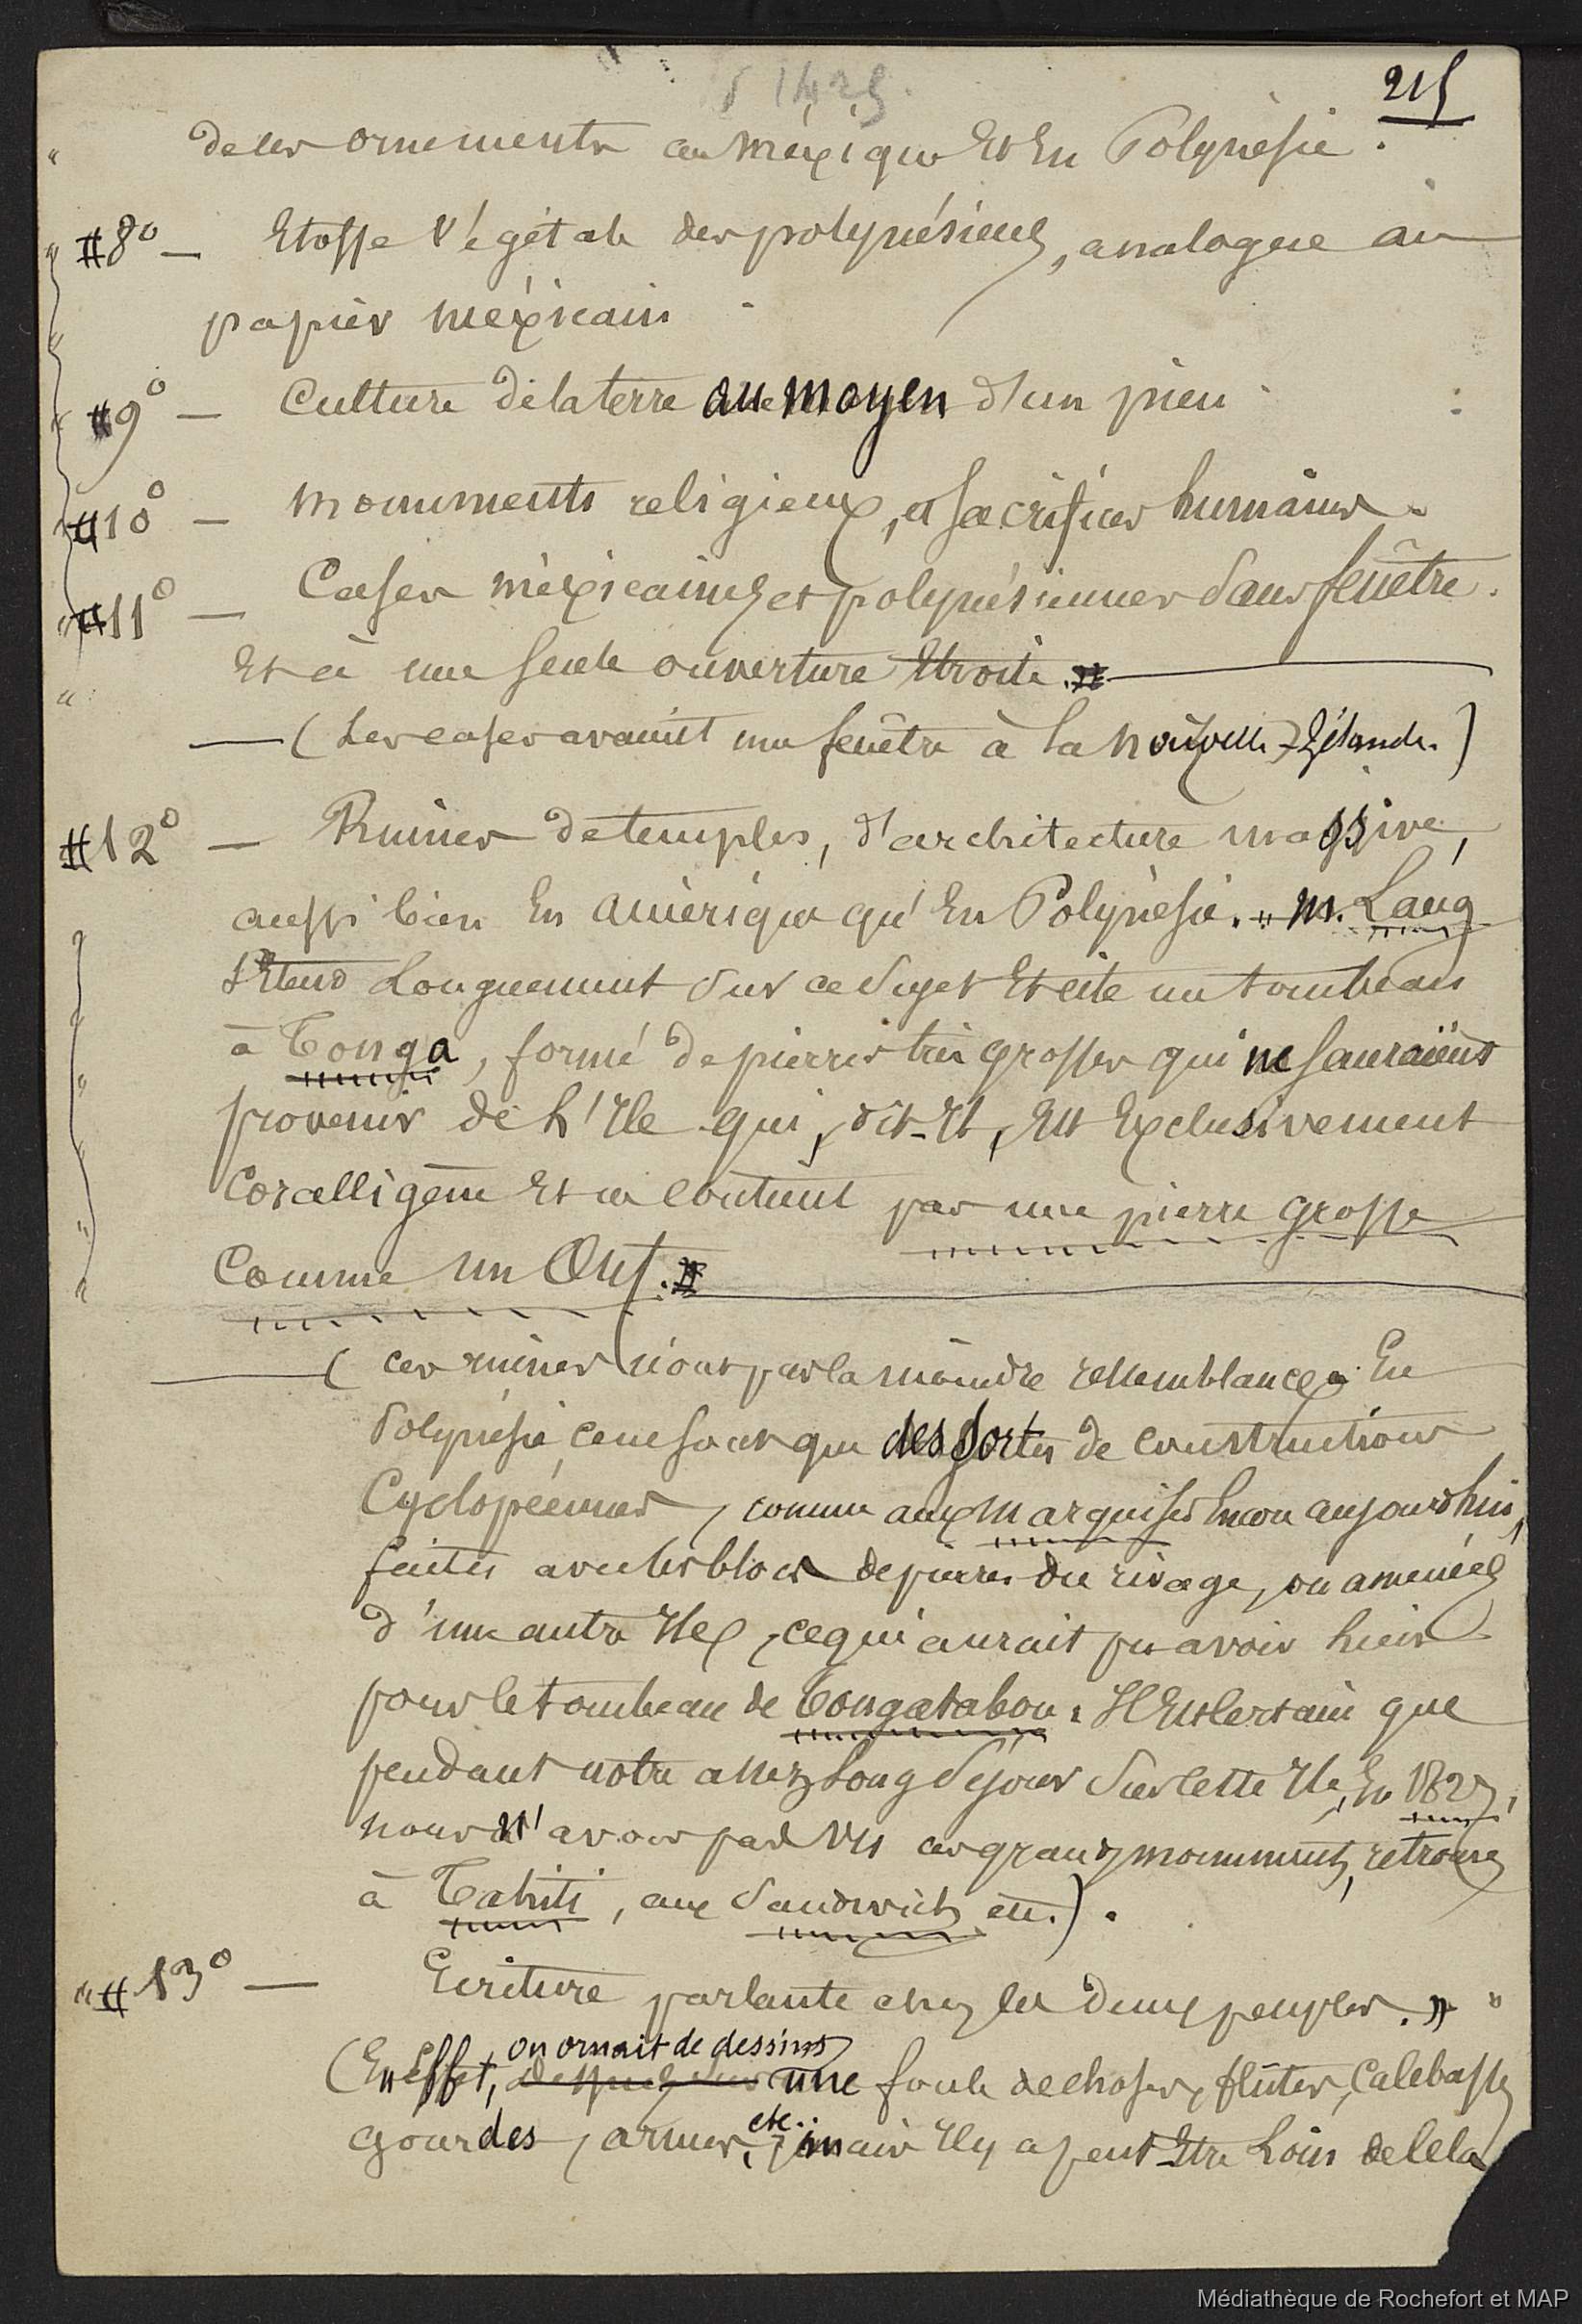 215
de ces ornements au méxique Et En Polynésie.
#8° — Etoffe Végétale des polynésiens, analogue au
papier méxicain
#9° — Culture de la terre au moyen d'un pieu
#10° — monuments religieux, et sacrifices humains.
#11° — Cases méxicaines et polynésiennes sans fenêtre.
Et à une seule ouverture Etroite.
— (Les cases avaient une fenêtre à la nouvelle-Zélande.)
#12° — Ruines de temples, d'architecture massive,
aussi bien En amérique qu'En Polynésie. " M. Lang
s'Etend Longuement sur ce sujet Et cite un tombeau
à Tonga, formé de pierres très grosses qui ne sauraient
provenir de L'Ile qui, dit-Il, Est Exclusivement
Coralligène Et ne contient pas une pierre grosse
Comme un Œuf.
( ces ruines n'ont pas la moindre ressemblance; En
Polynésie ce ne sont que des sortes de constructions
Cyclopéennes, comme aux marquises Encore aujourd'hui,
faites avec les blocs de pierres du rivage, ou amenées
d'une autre Ile, ce qui aurait pu avoir lieu
pour le tombeau de Tongatabou. Il Est certain que
pendant notre assez Long séjour sur cette Ile, En 1827,
nous n'avons pas vu ces grands monuments, retrouvés
à Tahiti, aux Sandwich, etc.).
" #13° — Ecriture parlante chez les deux peuples. » "
on ornait de dessins
(En Effet, une foule de choses, flûtes, Calebasses
gourdes, armes, etc.; mais Il y a peut-Etre Loin de cela
Médiathèque de Rochefort et MAP